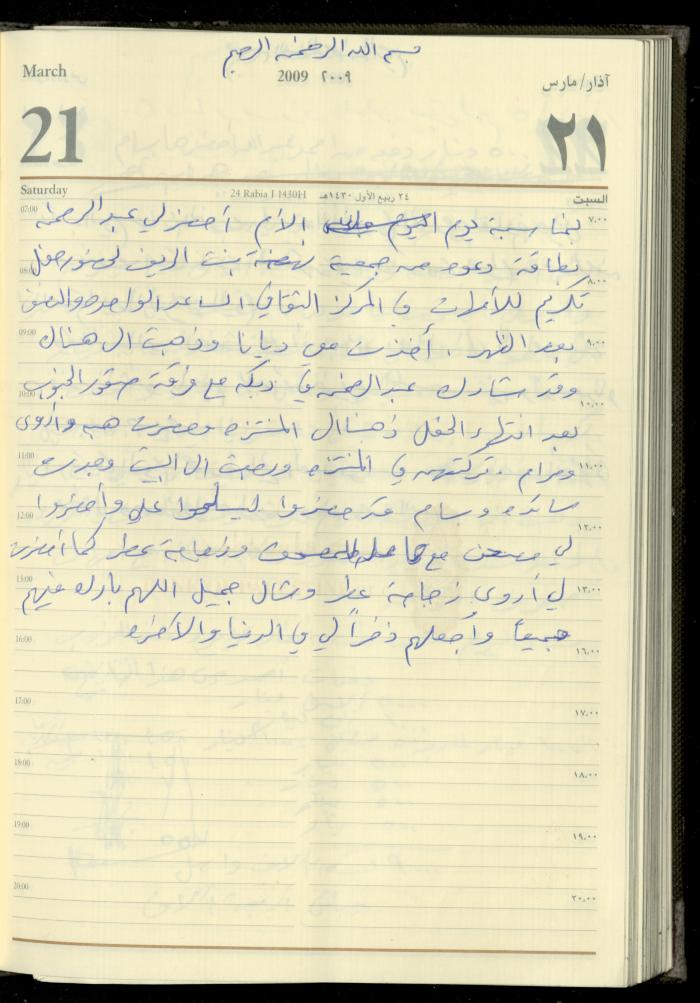 بسم الله الرحمن الرحيم
March 2009 ٢٠٠٩ آذار/مارس
21 ٢١
Saturday 24 Rabia I 1430H ٢٤ ربيع الأول ١٤٣٠هـ السبت
07:00 بمناسبة يوم اليوم الأم أحضر لي عبد الرحمن ٧،٠٠
08:00 بطاقة دعوه من جمعية نهضة بنت الريف لحضور حفل ٨،٠٠
تكريم للأمهات في المركز الثقافي الساعه الواحده والنصف
09:00 بعد الظهر . أخذت معي ديانا وذهبت الى هناك ٩،٠٠
10:00 وقد شارك عبد الرحمن في دبكه مع فرقة صقور الجنوب ١٠،٠٠
بعد انتهاء الحفل ذهبنا الى المنتزه وحضرت هبه وأروى
11:00 ومرام . تركتهم في المنتزه ورجعت الى البيت وجدت ١١،٠٠
12:00 سائده وسام قد حضروا ليسلموا علي وأحضروا ١٢،٠٠
لي مع وزجاجة عطر كما أحضرت
13:00 لي أروى زجاجة عطر وشال جميل اللهم بارك فيهم ١٣،٠٠
16:00 جميعاً وأجعلهم ذخراً لي في الدنيا والآخره ١٦،٠٠
17:00 ١٧،٠٠
18:00 ١٨،٠٠
19:00 ١٩،٠٠
20:00 ٢٠،٠٠